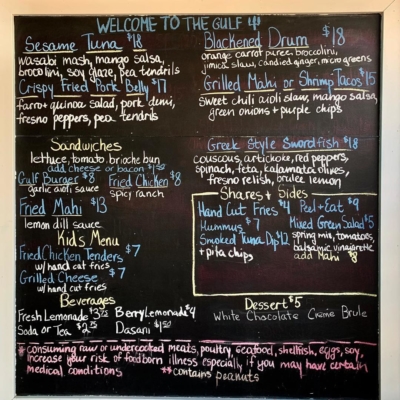 WELCOME TO THE GULF
Sesame Tuna $18
wasabi mash, mango salsa,
broccolini, soy glaze, pea tendrils
Crispy Fried Pork Belly $17
farro + quinoa salad, pork demi,
fresno peppers, pea tendrils
Blackened Drum $18
orange carrot puree, broccolini,
jimica slaw, candied ginger, micro greens
Grilled Mahi or Shrimp Tacos $15
sweet chili aioli slaw, mango salsa,
green onions + purple chips
Sandwiches
lettuce, tomato, brioche bun
add cheese or bacon $1.50
Gulf Burger $8
garlic aioli sauce
Fried Chicken $8
spicy ranch
Fried Mahi $13
lemon dill sauce
Kid's Menu
Fried Chicken Tenders $7
w/ hand cut fries
Grilled Cheese $7
w/ hand cut fries
Beverages
Fresh Lemonade $3.75
Berry Lemonade $4
Soda or Tea $2.75
Dasani $1.50
Greek Style Swordfish $18
couscous, artichoke, red peppers,
spinach, feta, kalamata olives,
fresno relish, oculee lemon
Shares + Sides
Hand Cut Fries $4
Hummus $7
Smoked Tuna Dip $12
+ pita chips
Peel + Eat $9
Mixed Green Salad $5
spring mix, tomatoes,
balsamic vinaigrette
add Mahi $8
Dessert $5
White Chocolate Creme Brule
* consuming raw or undercooked meats, poultry, seafood, shellfish, eggs, soy,
increase your risk of foodborn illness especially if you may have certain
medical conditions ** contains peanuts